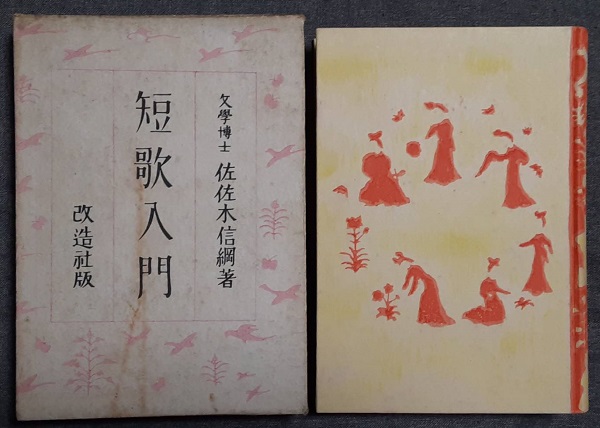 文學博士 佐佐木信綱著
短歌入門
改造社版